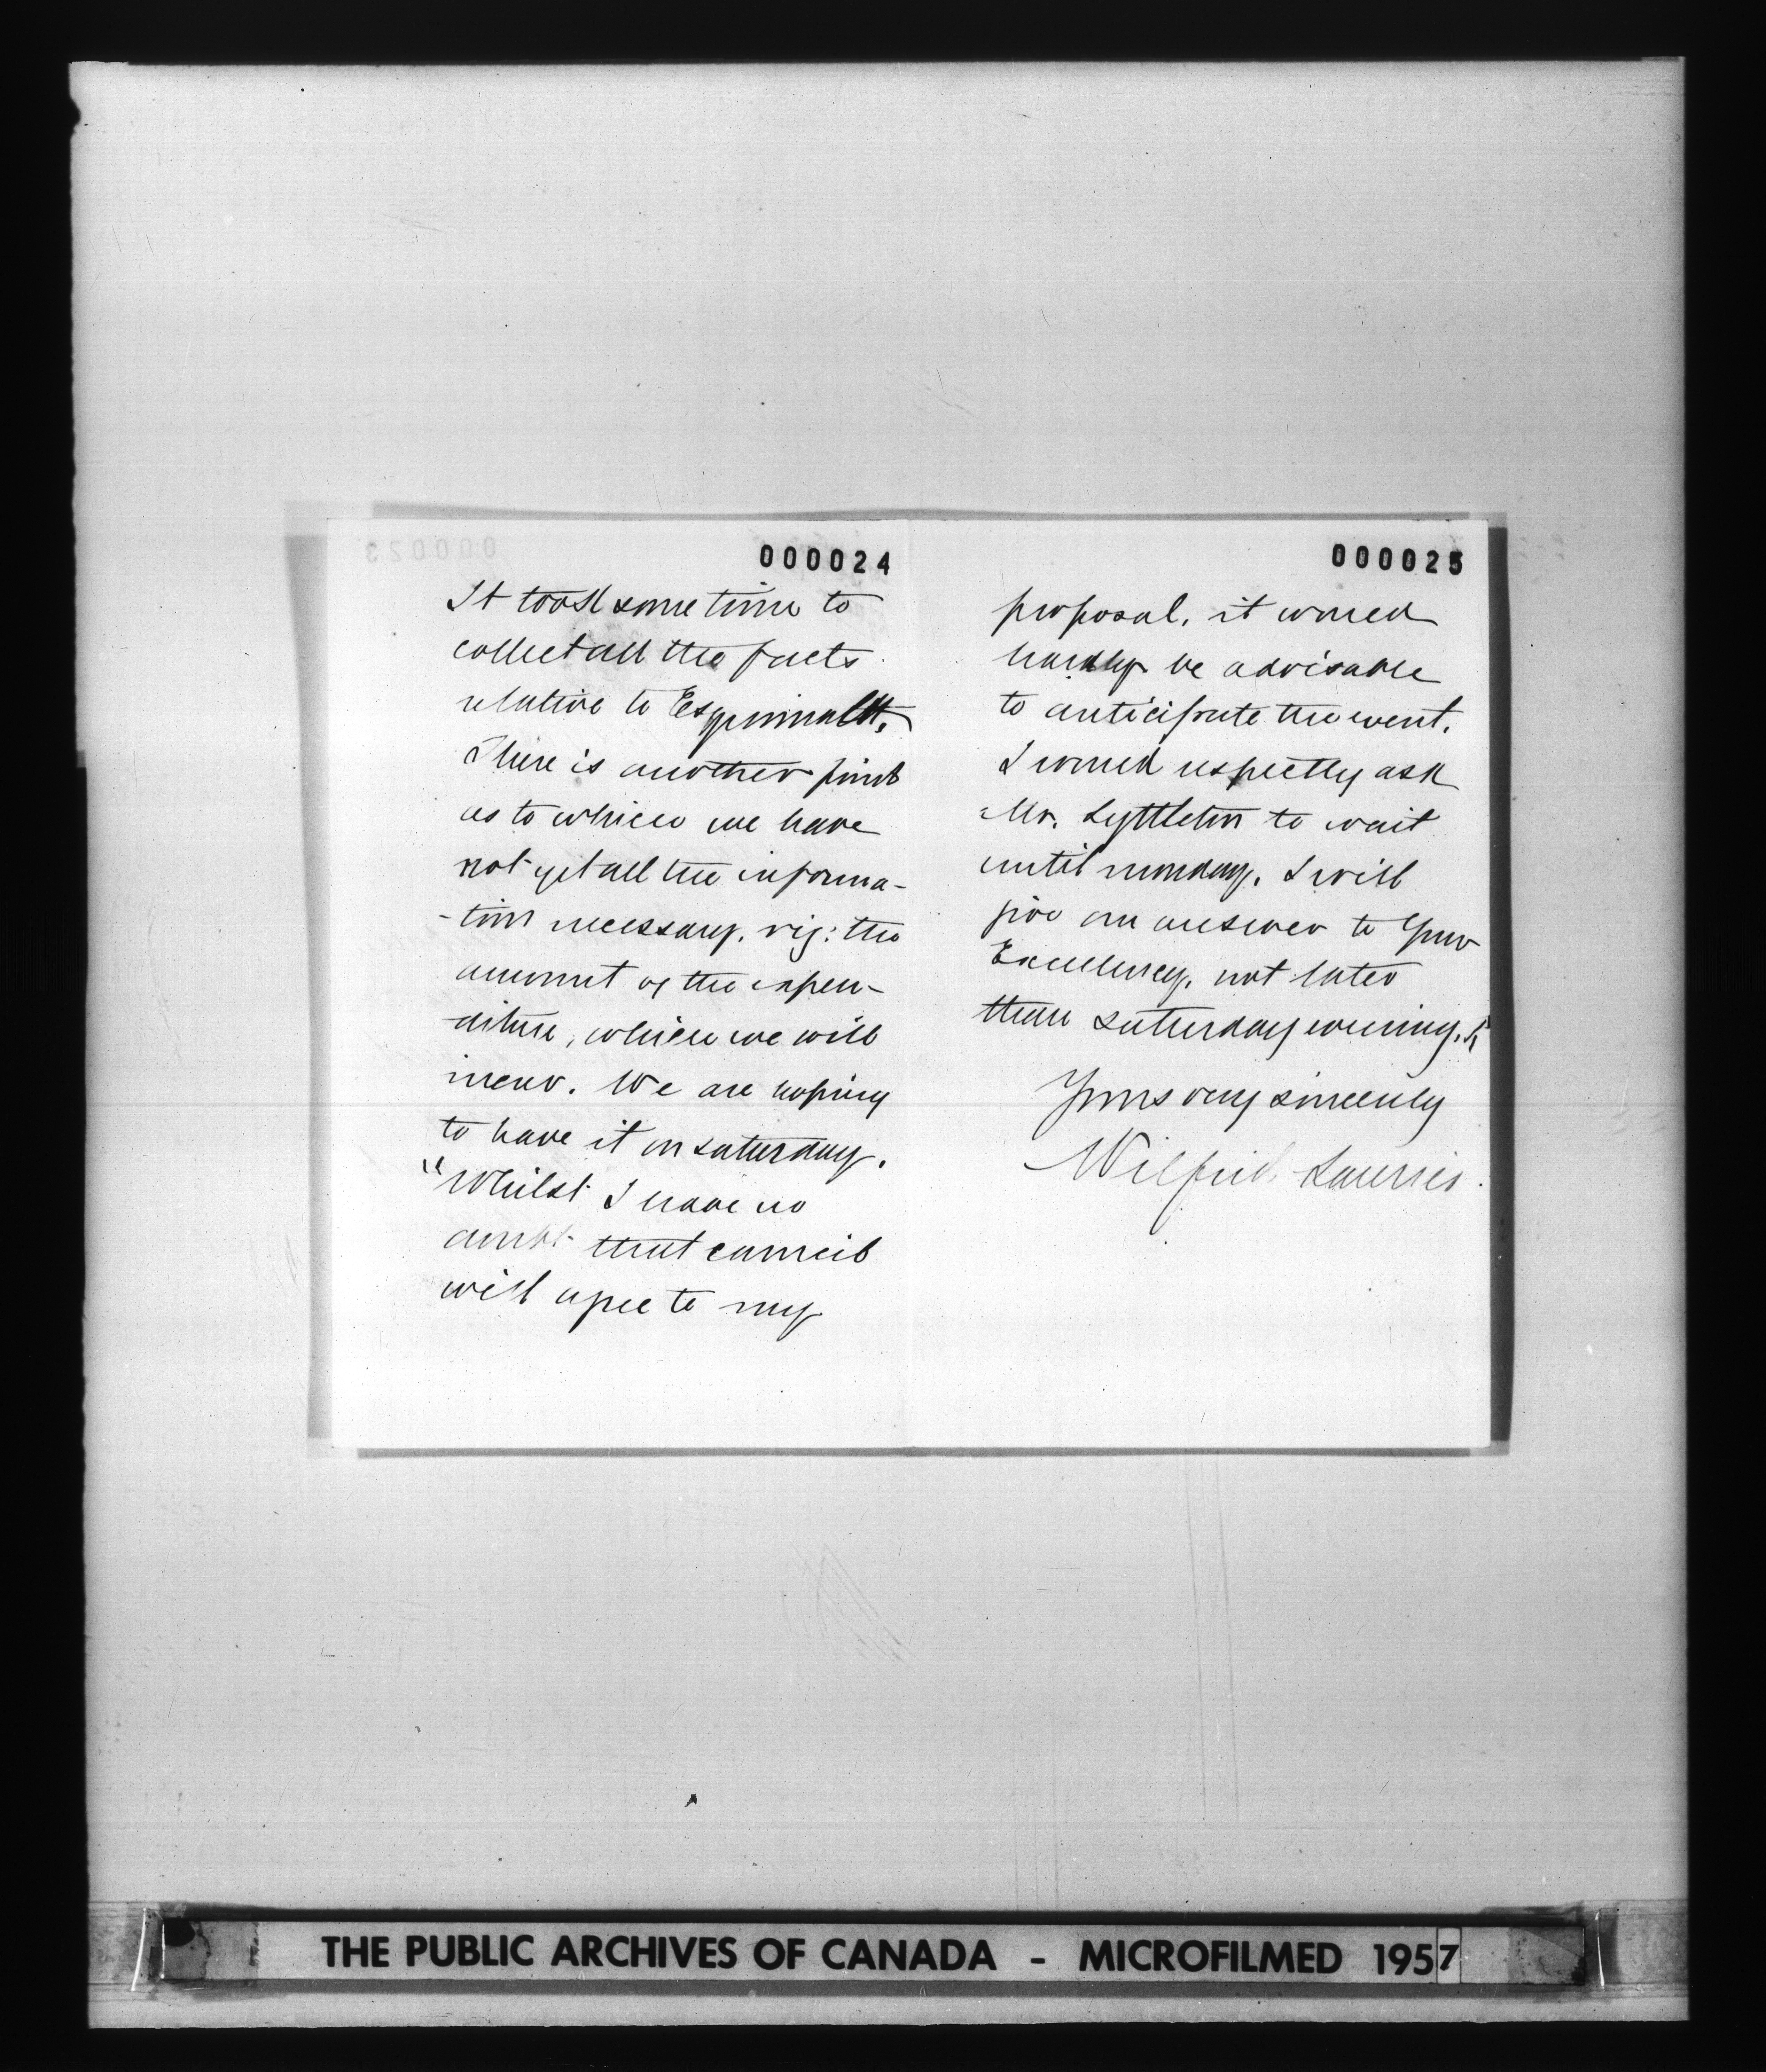 000024
It took some time to
collect all the facts
relative to Esquimalt,
There is another point
as to which we have
not yet all the informa-
-tion necessary, viz: the
amount of the expen-
diture, which we will
incur. We are hoping
to have it on Saturday.
"Whilst I have no
doubt that council
will agree to my
000025
proposal, it would
hardly be advisable
to anticipate the event.
I would respectly ask
Mr. Lyttleton to wait
until monday. I will
give an answer to Your
Excellency, not later
than Saturday evening.
Yours very sincerely
Wilfrid Laurier.
THE PUBLIC ARCHIVES OF CANADA - MICROFILMED 1957